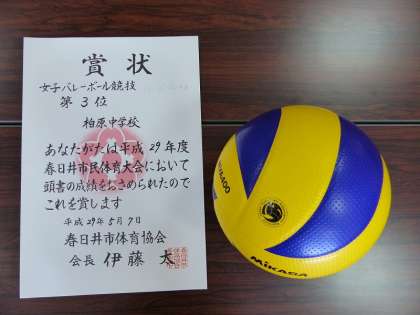 賞状
女子バレーボール競技
第3位
柏原中学校
あなたがたは平成29年度
春日井市民体育大会において
頭書の成績をおさめられたので
これを賞します
平成29年5月7日
春日井市体育協会
会長 伊藤 太
MIKASA